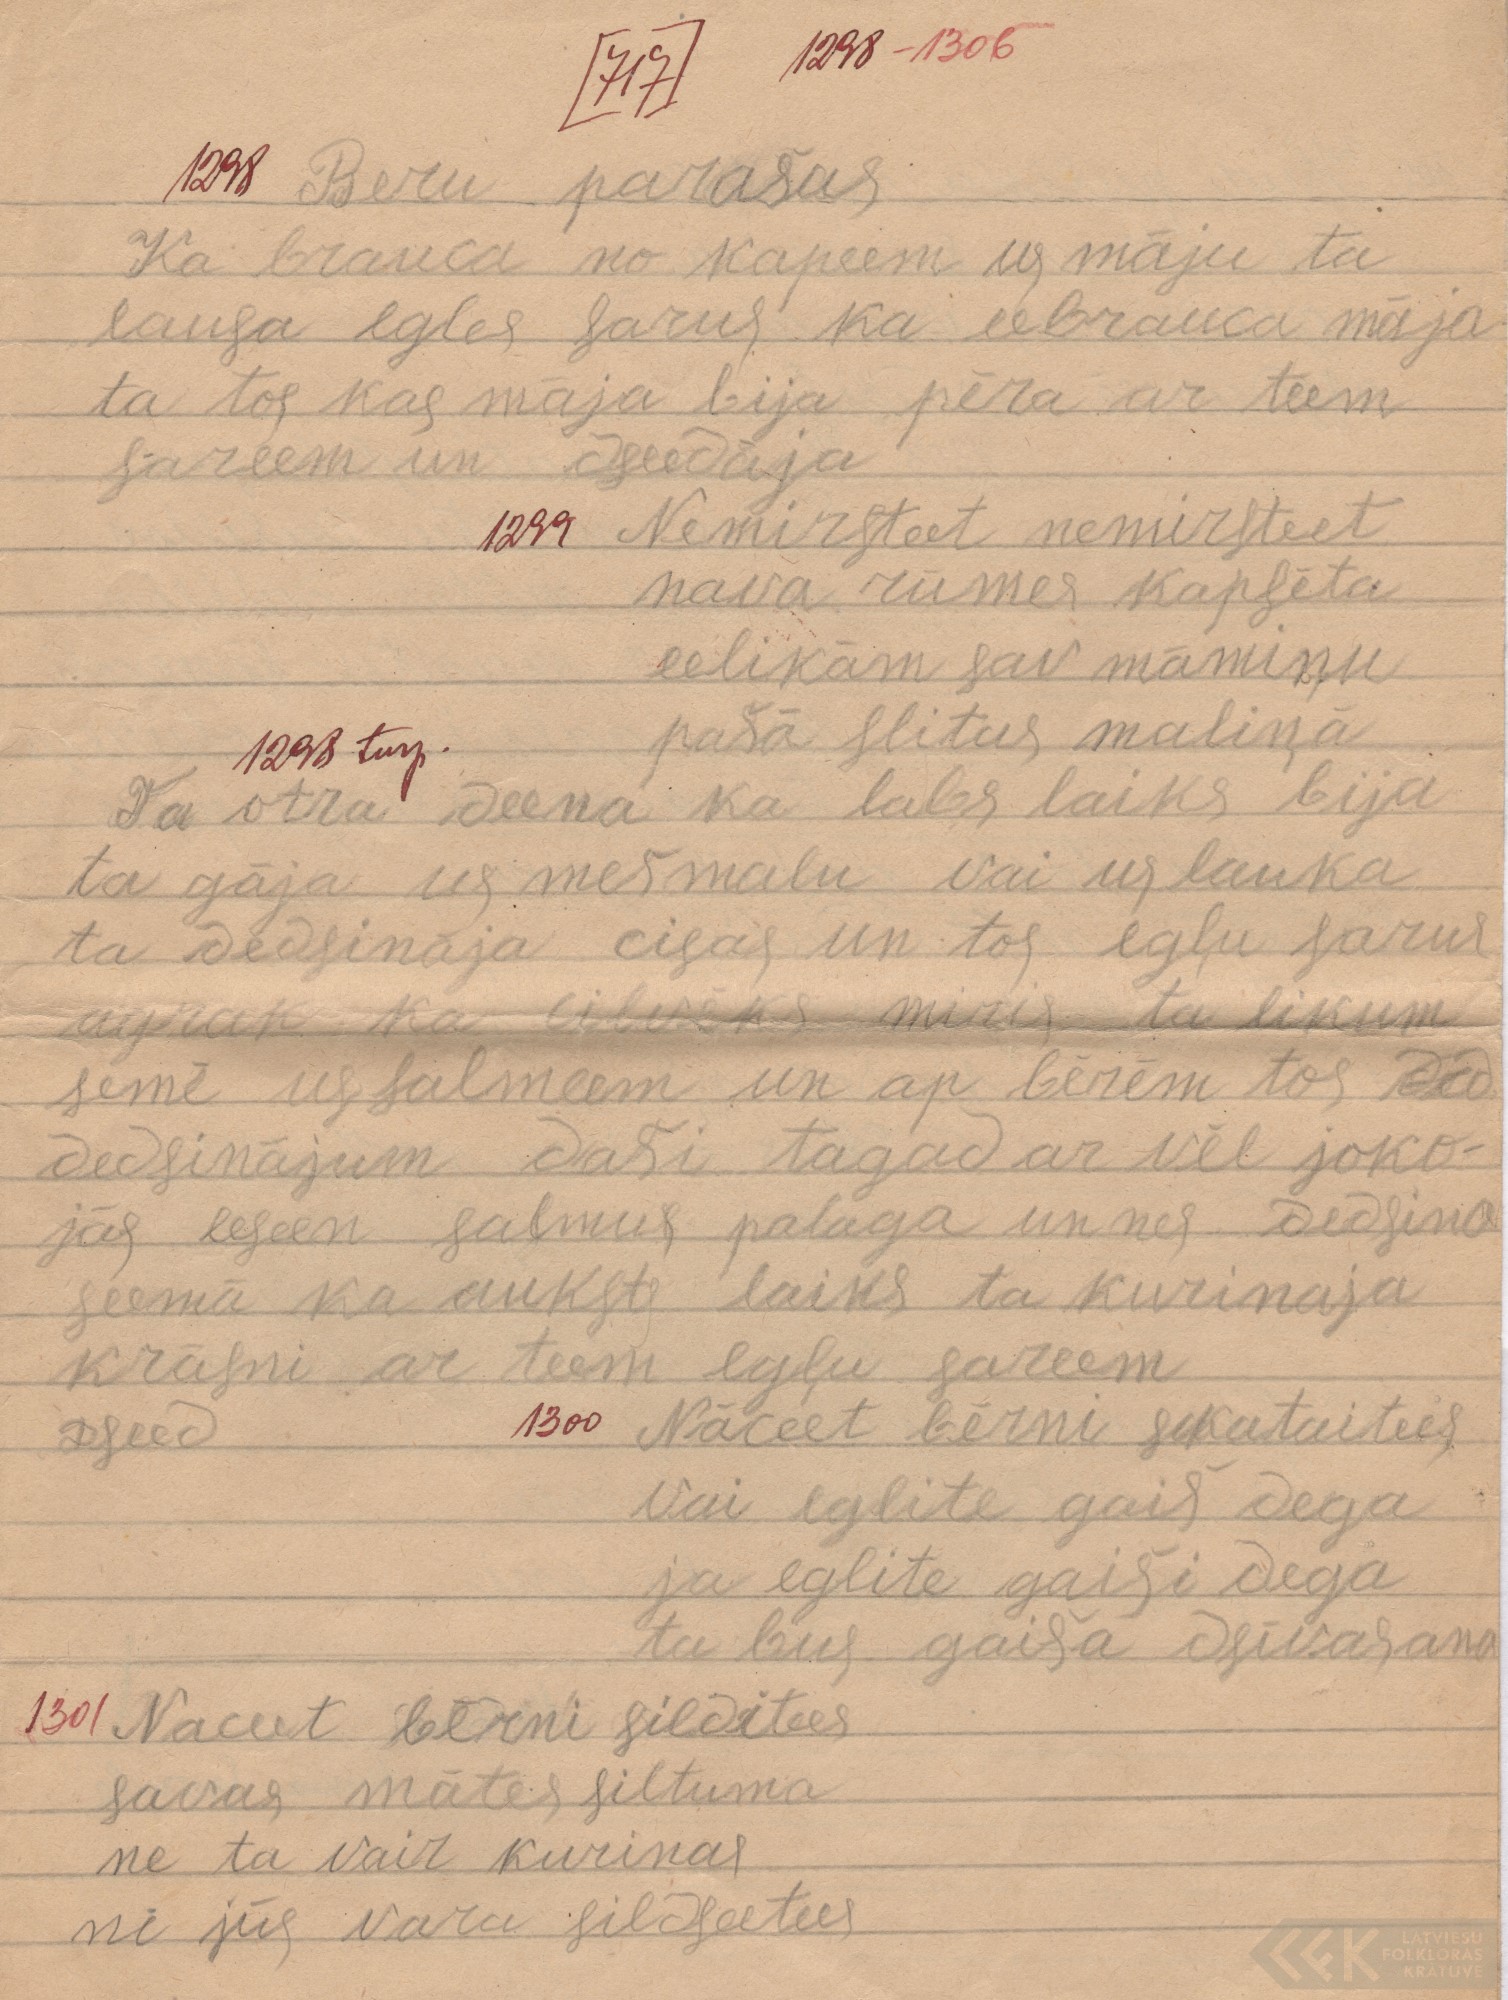 [717] 1298-1306
1298 Beru parašas
Ka brauca no kapeem us māju ta
lausa egles sarus ka eebrauca māja
ta tos kas māja bija pēra ar teem
sareem un dseedāja
1299 Nemirsteet nemirsteet
nava rūmes kapsēta
eelikām sav māmiņu
pašā slitus maliņā
1298 turp.
Ta otra deena ka labs laiks bija
ta gāja us mešmalu vai us lauka
ta dedsināja cisas un tos egļu sarus
agrak ka cilvēks miris ta likum
semē us salmeem un ap bērēm tos ded
dedsinājum daši tagad ar vēl joko-
jās eseen salmus palaga un nes dedsina
seemā ka auksts laiks ta kurinaja
krāsni ar teem egļu sareem
dseed
1300 Nāceet bērni skataitees
vai eglite gaiš dega
ja eglite gaiši dega
ta bus gaiša dsīvasana
1301 Naceet bērni silditees
savas mātes siltuma
ne ta vair kurinas
ni jūs vara sildseetees
LATVIEŠU
FOLKLORAS
KRĀTUVE